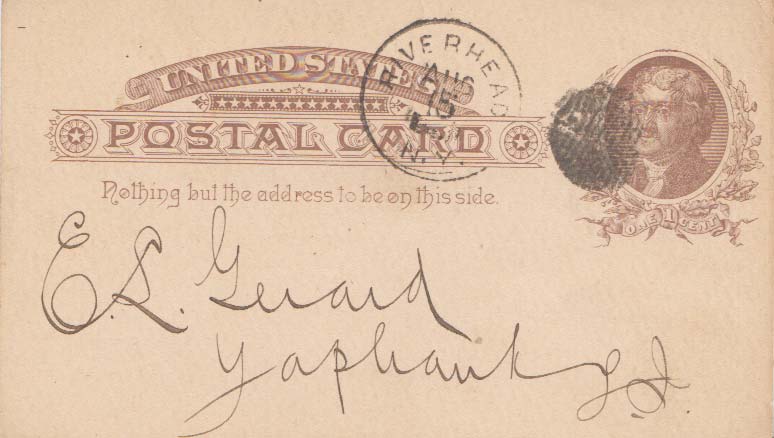 UNITED STATES
POSTAL CARD
Nothing but the address to be on this side.
RIVERHEAD
AUG
15
N.Y.
ONE 1 CENT
E. L. Gerard
Yaphank L. I.